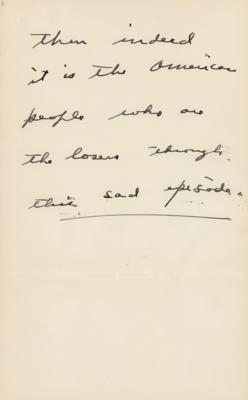 then indeed
it is the American
people who are
the losers through
this sad episode.